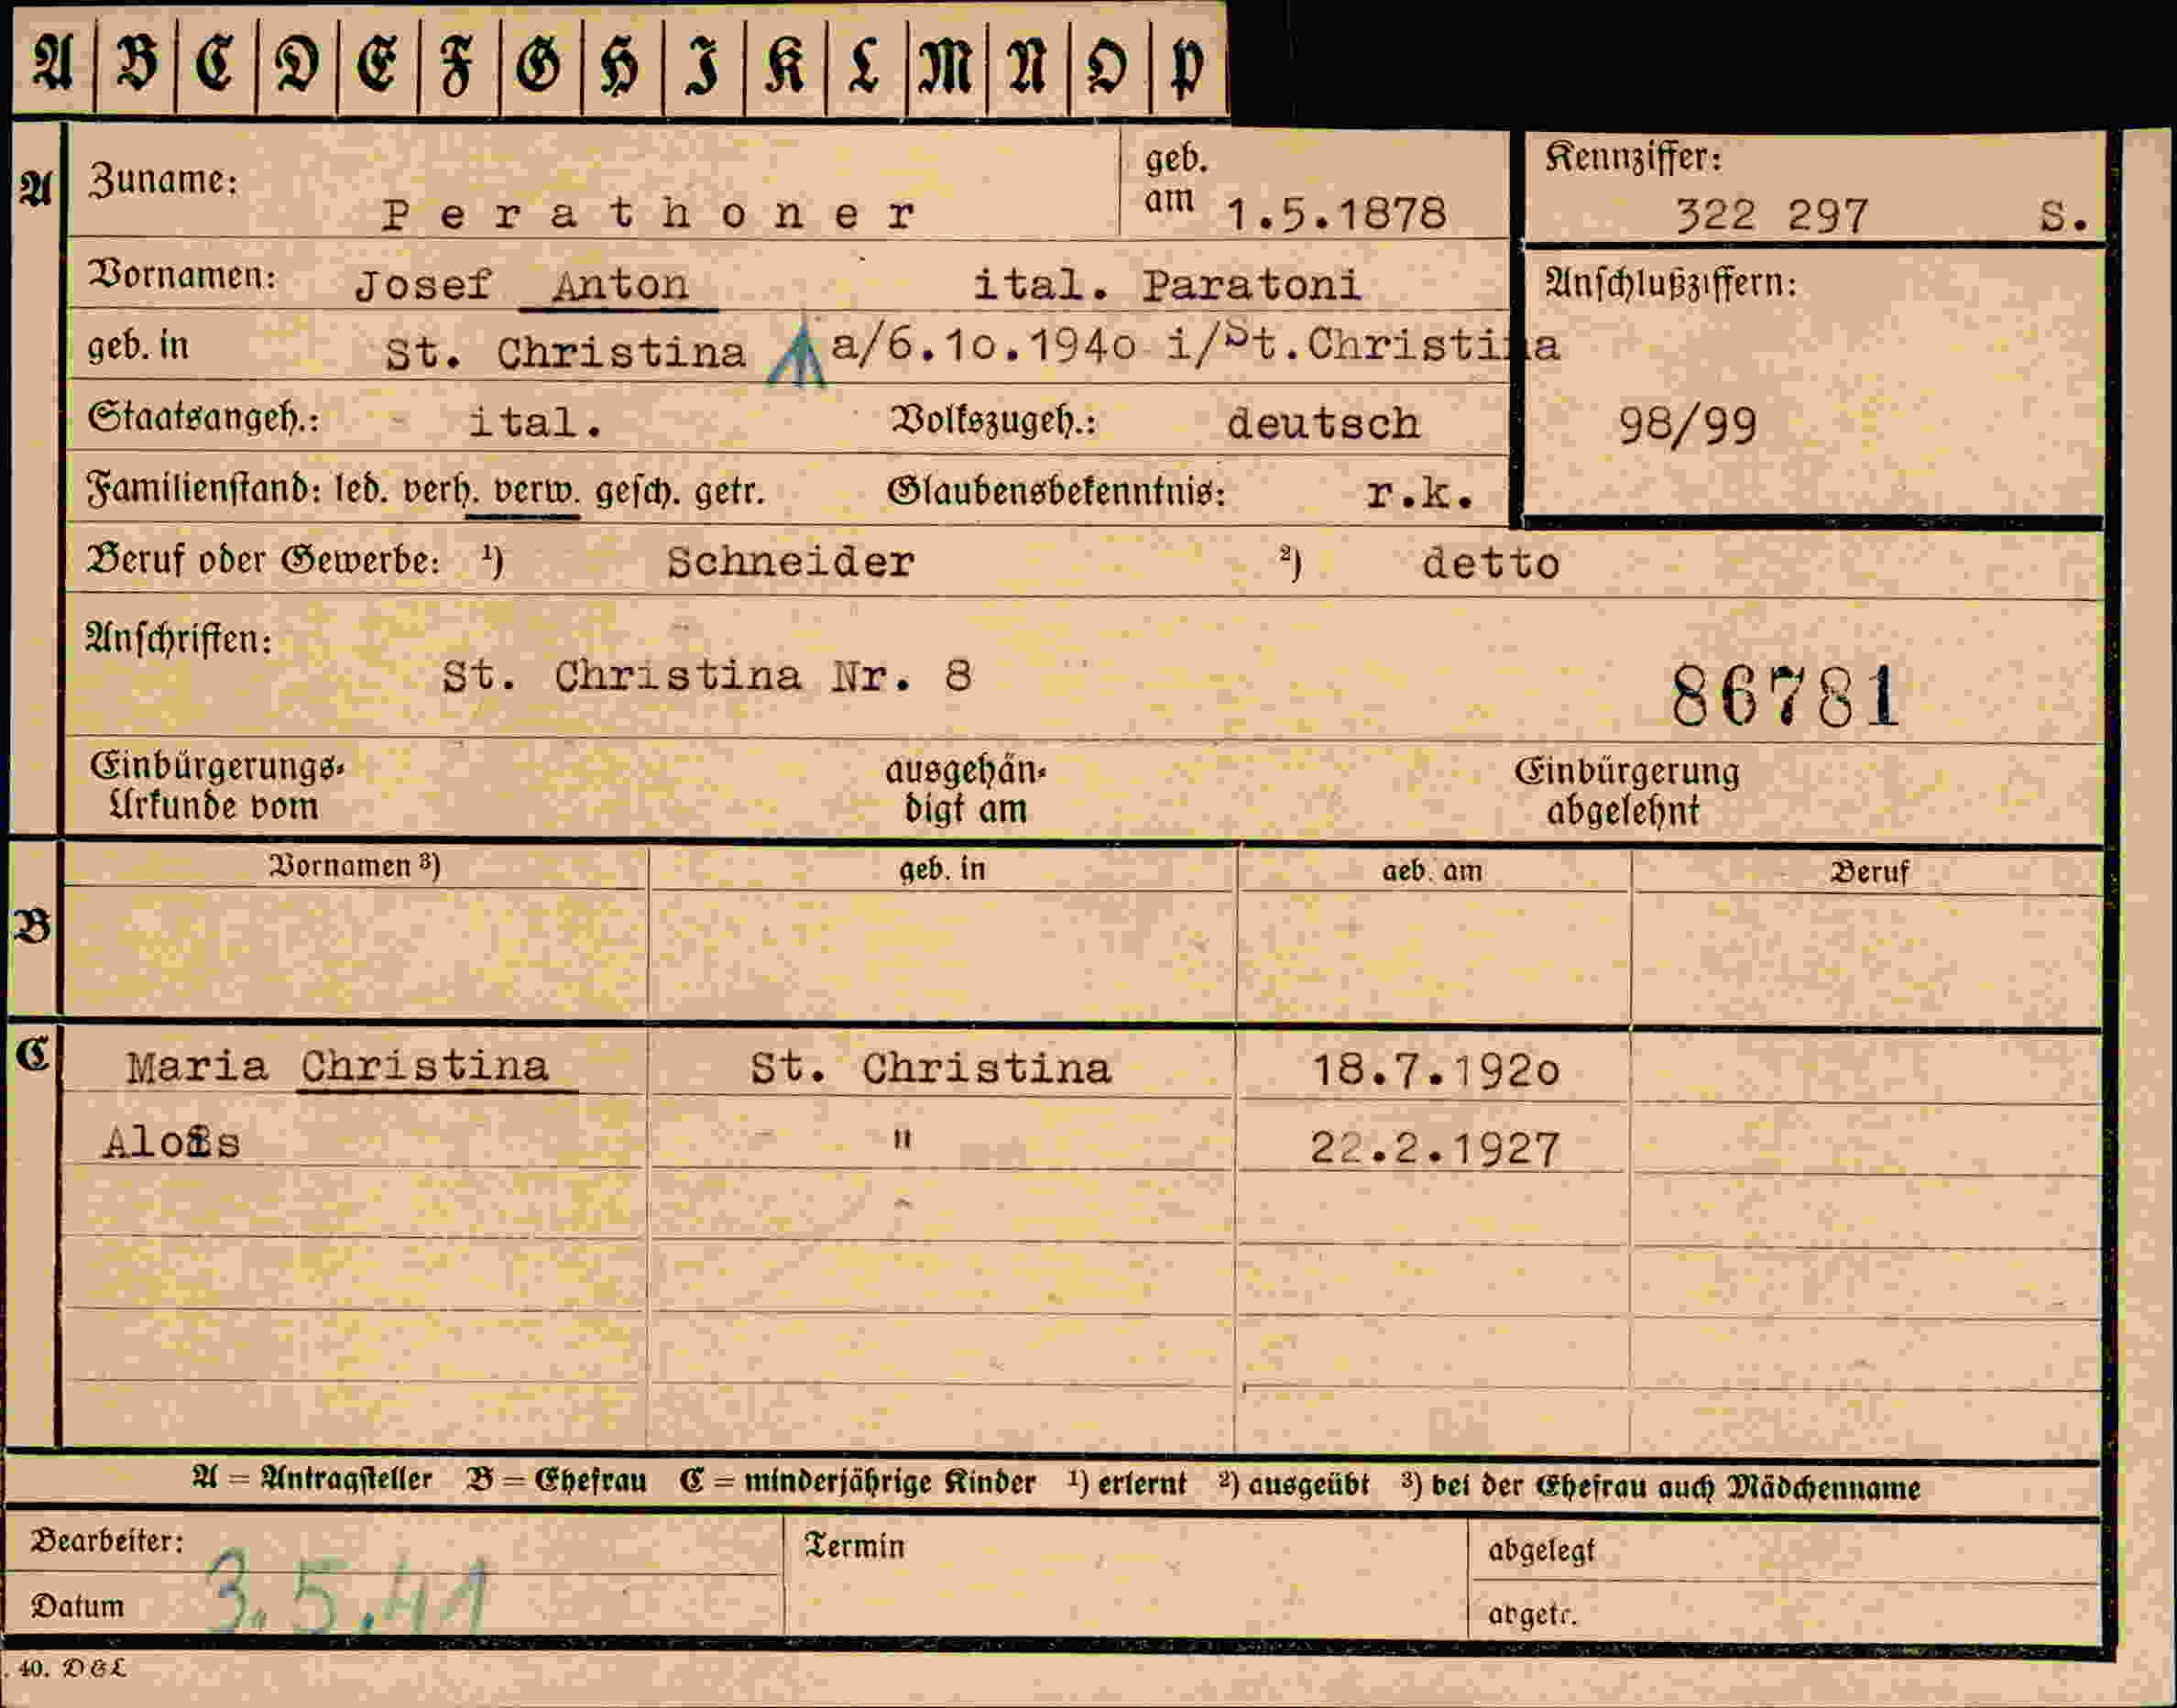 A B C D E F G H I K L M N O P
A Zuname: Perathoner geb. am 1.5.1878 Kennziffer: 322 297 S.
Vornamen: Josef Anton ital. Paratoni Anschlußziffern:
geb. in St. Christina a/6.10.1940 i/St.Christina
Staatsangeh.: ital. Volkszugeh.: deutsch 98/99
Familienstand: led. verh. verw. gesch. getr. Glaubensbekenntnis: r.k.
Beruf oder Gewerbe: ¹) Schneider ²) detto
Anschriften:
St. Christina Nr. 8 86781
Einbürgerungs- ausgehän- Einbürgerung
Urkunde vom digt am abgelehnt
Vornamen ³) geb. in geb. am Beruf
B
C Maria Christina St. Christina 18.7.1920
Alois " 22.2.1927
A = Antragsteller B = Ehefrau C = minderjährige Kinder ¹) erlernt ²) ausgeübt ³) bei der Ehefrau auch Mädchenname
Bearbeiter: Termin abgelegt
Datum 3.5.41 abgetr.
40. D&L